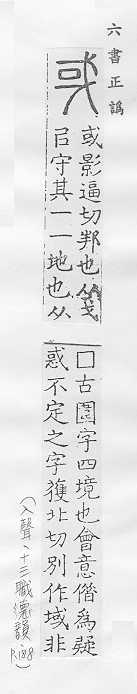 六書正譌
或影逼切邦也从戈
㠯守其一一地也从
囗古圍字四境也會意借為疑
惑不定之字獲北切別作域非
(入聲、十三職德韻,P.188)